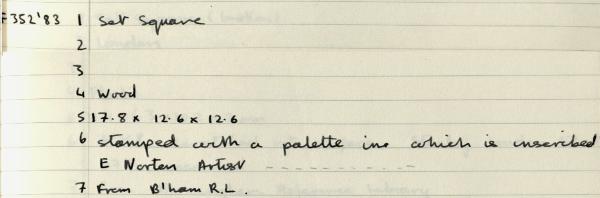 F352'83 1 Set Square
2
3
4 Wood
5 17.8 x 12.6 x 12.6
6 stamped with a palette in which is inscribed
E Norton Artist - - - - - - - - - -
7 From B'ham R.L.